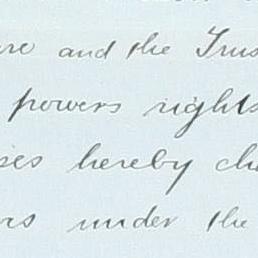 and the Trus
powers rights
hereby ch
under the